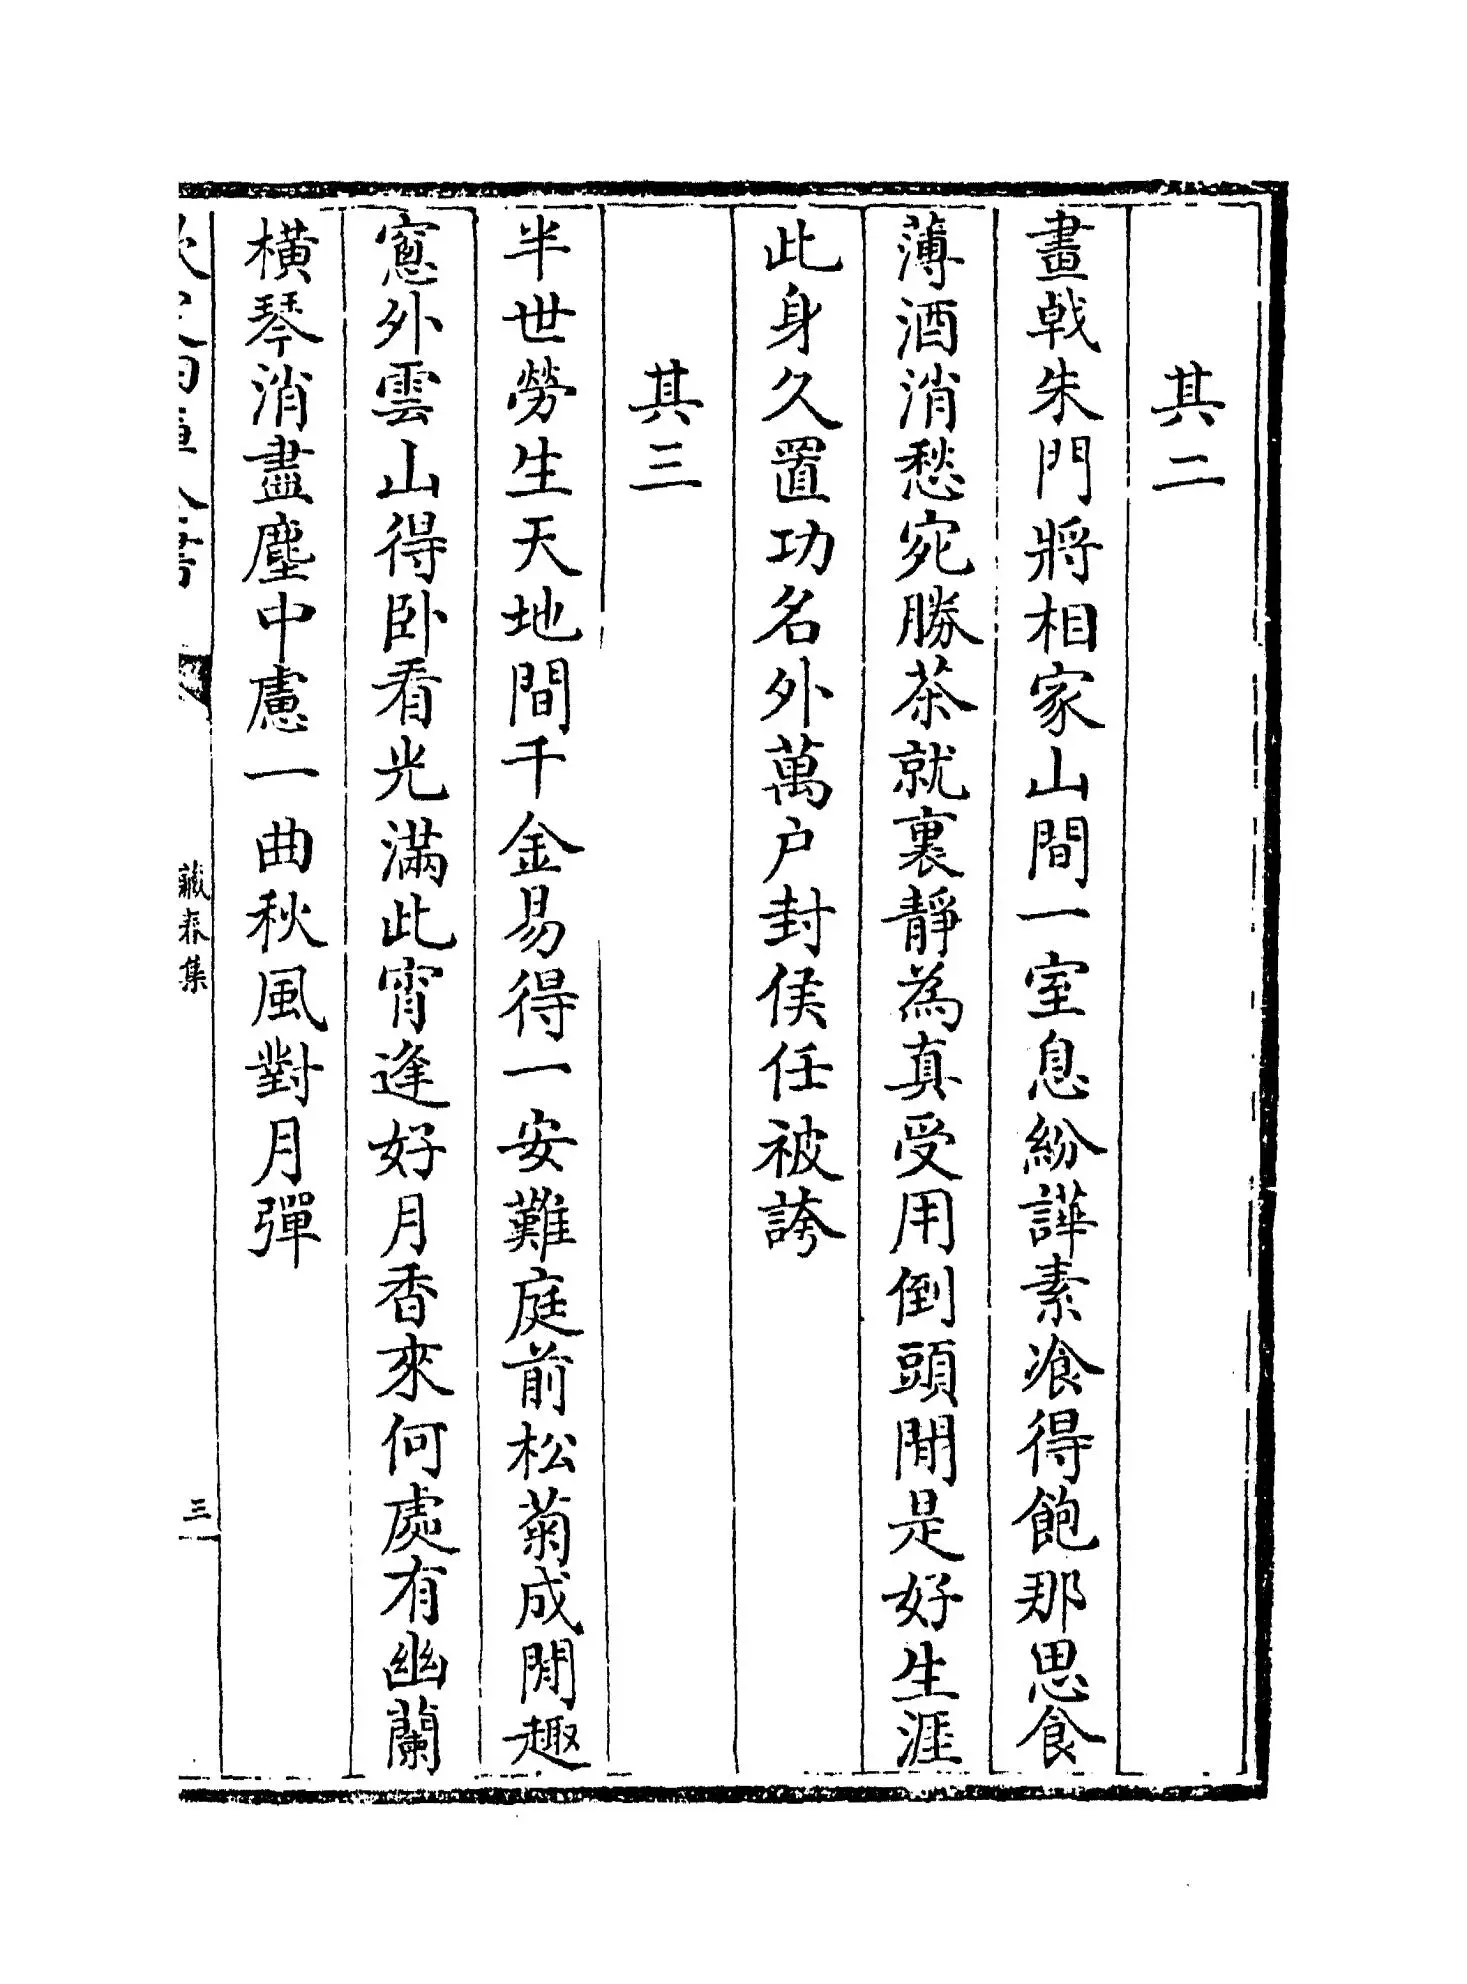 其二
畫㦸朱門將相家山間一室息紛譁素飡得飽那思食
薄酒消愁宛勝茶就裏靜為真受用倒頭閒是好生涯
此身久置功名外萬户封侯任被誇
其三
半世勞生天地間千金易得一安難庭前松菊成閒趣
窻外雲山得卧看光滿此宵逢好月香來何處有幽蘭
橫琴消盡塵中慮一曲秋風對月彈
藏春集
三